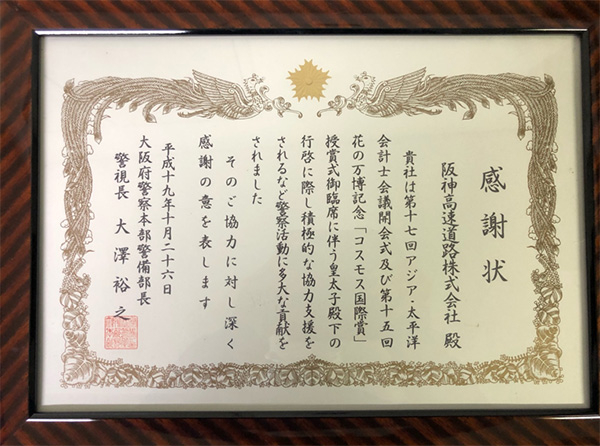 感謝状
阪神高速道路株式会社 殿
貴社は第十七回アジア・太平洋
会計士会議開会式及び第十五回
花の万博記念「コスモス国際賞」
授賞式御臨席に伴う皇太子殿下の
行啓に際し積極的な協力支援を
されるなど警察活動に多大な貢献を
されました
そのご協力に対し深く
感謝の意を表します
平成十九年十月二十六日
大阪府警察本部警備部長
警視長 大澤裕之